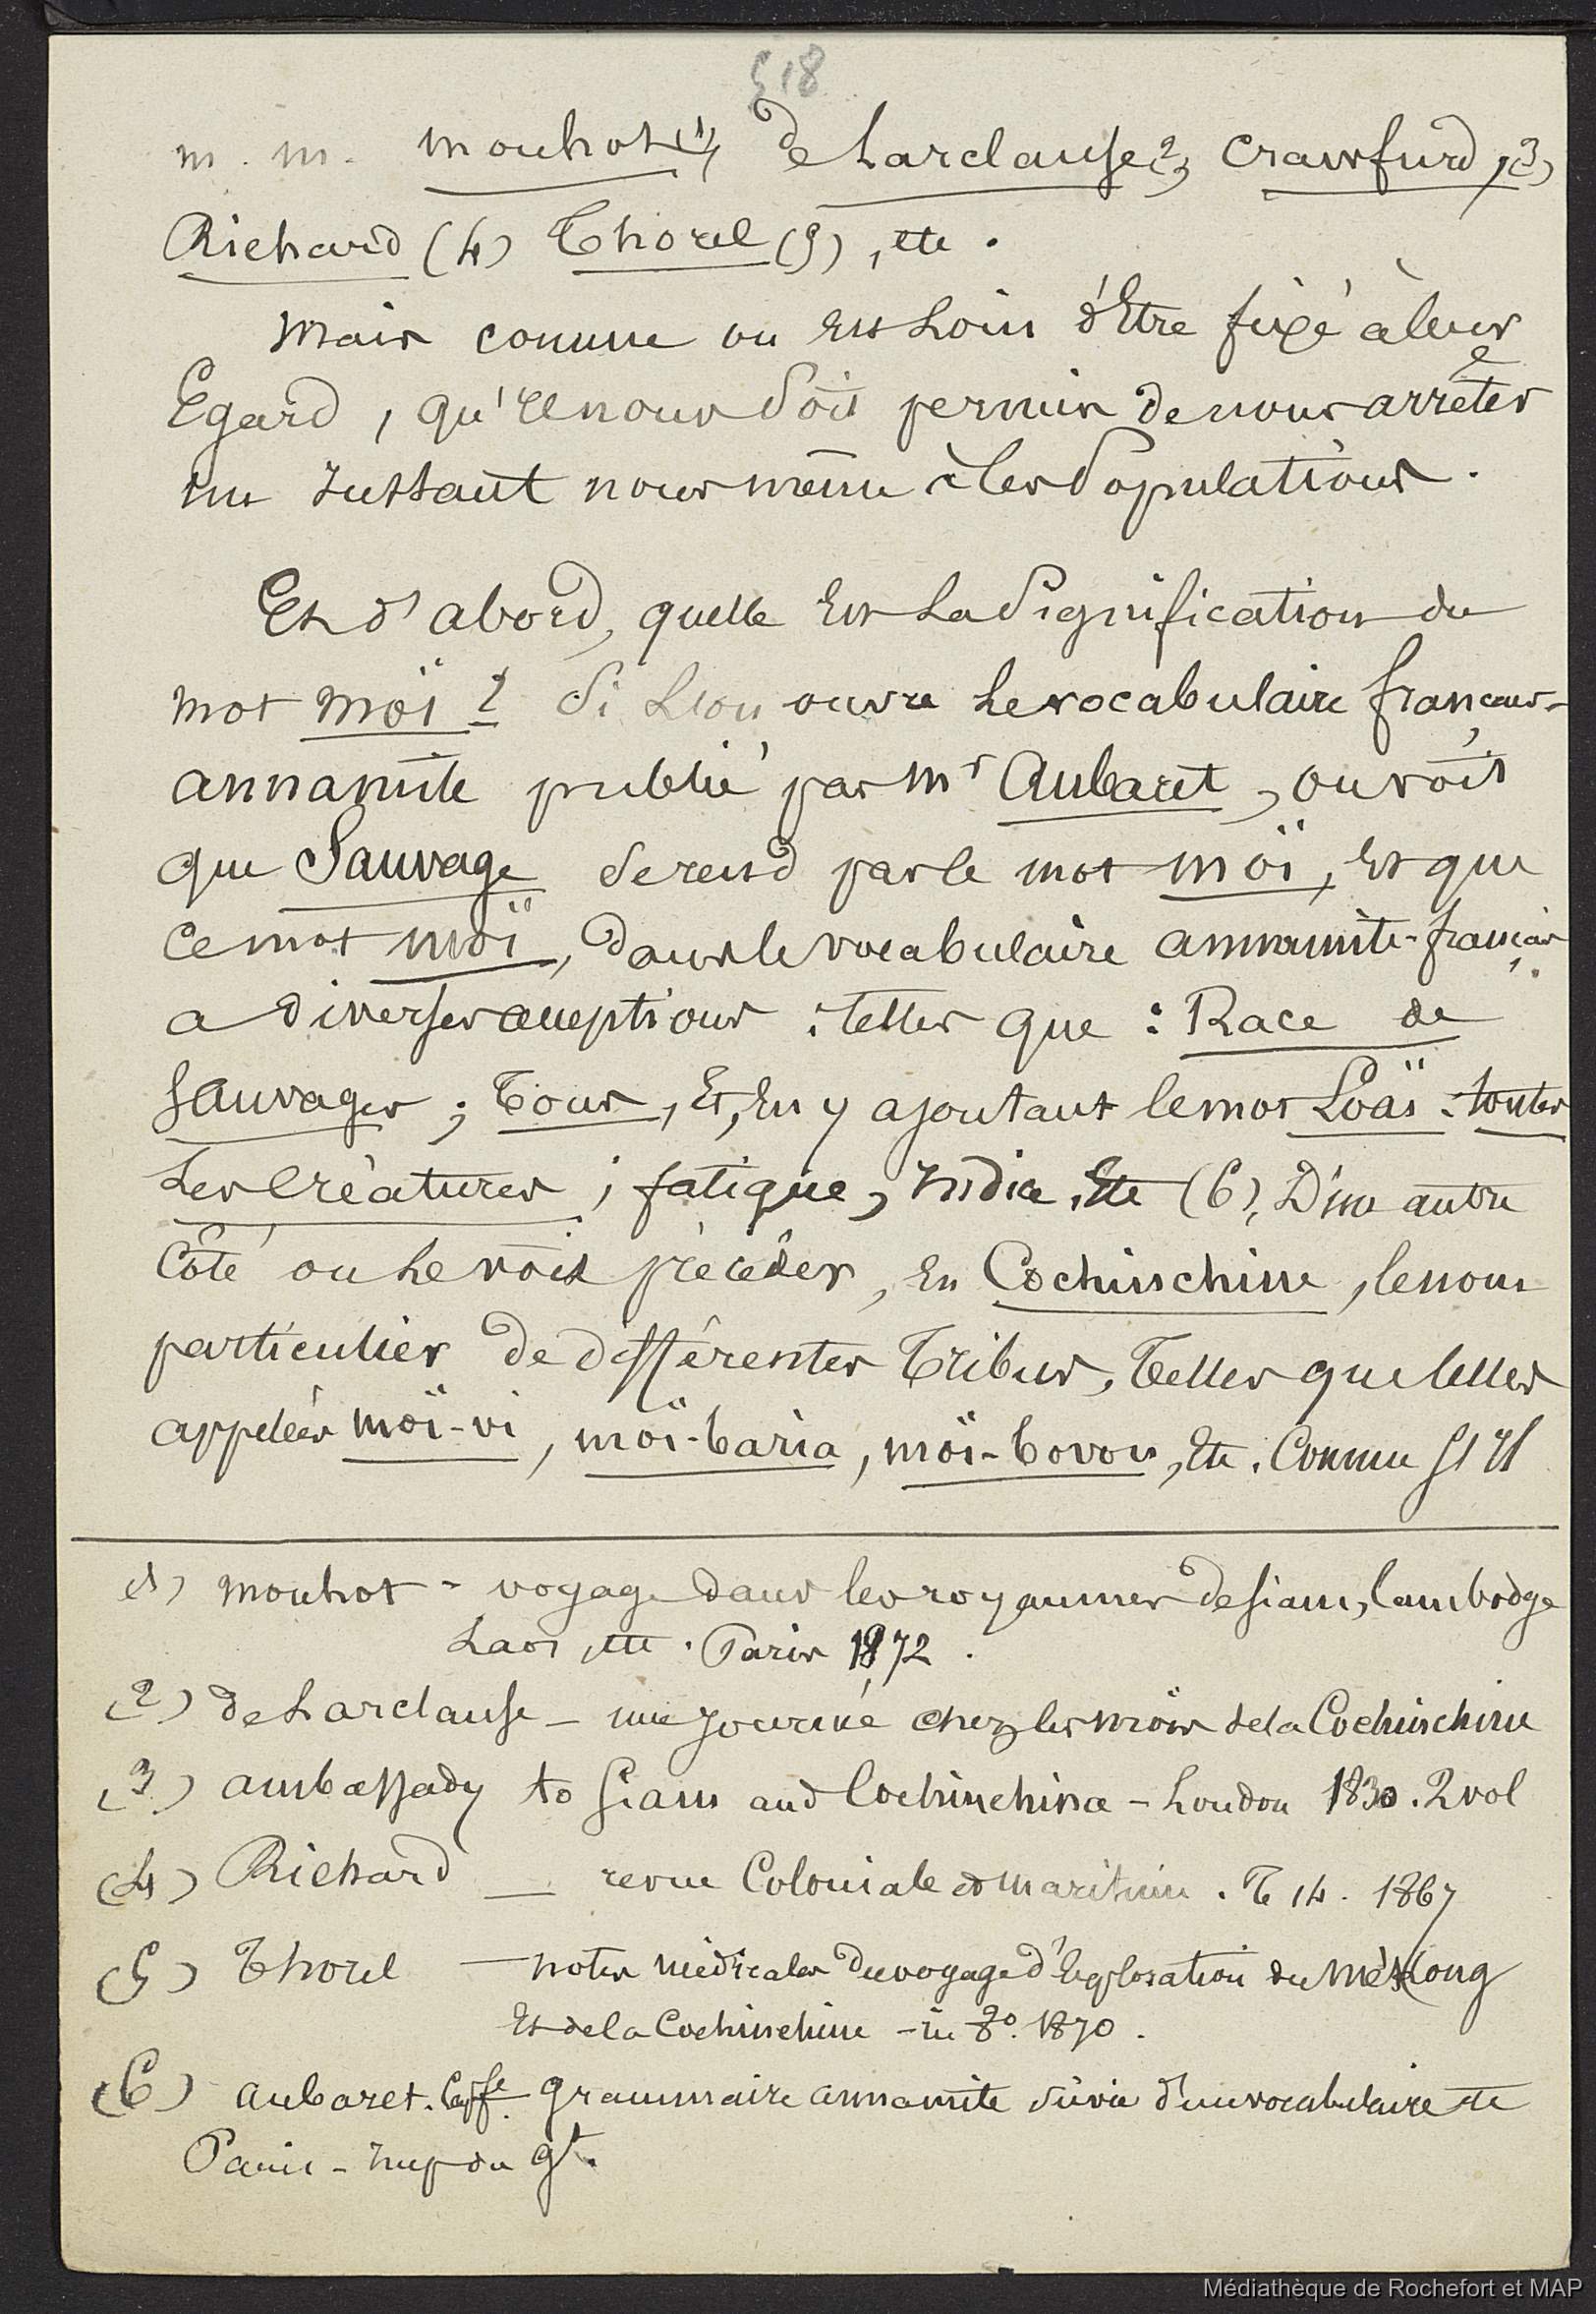 518
m. m. mouhot (1), de Larclause (2), Crawfurd, (3)
Richard (4) Thorel (5), etc.
mais comme on est loin d'Etre fixé à leur
Egard, qu'il nous soit permis de nous arrêter
un Instant nous même à ces Populations.
Et d'abord, quelle est la signification du
mot moï ? Si l'on ouvre le vocabulaire français-
annamite publié par Mr Aubaret, on voit
que Sauvage se rend par le mot moï, et que
ce mot moï, dans le vocabulaire annamite-français
a diverses acceptions : telles que : Race de
Sauvages ; Tous, Et, En y ajoutant le mot Loäi : toutes
les créatures ; fatigue, Indice, Etc (6). D'un autre
Côté on le voit précéder, en Cochinchine, le nom
particulier de différentes Tribus, Telles que celles
appelées moï-vi, moï-baria, moï-bovon, Etc. Comme s'il
(1) mouhot - voyage dans les royaumes de Siam, Cambodge
Laos, etc. Paris 1872.
(2) de Larclause - une Journée chez les moïs de la Cochinchine
(3) ambassady to Siam and Cochinchina - London 1830. 2 vol
(4) Richard — revue Coloniale et Maritime. T 14. 1867
(5) Thorel — notes médicales du voyage d'Exploration du Mékong
Et de la Cochinchine - in 8°. 1870.
(6) aubaret. grammaire annamite suivie d'un vocabulaire etc
Paris - Imp du gt.
Médiathèque de Rochefort et MAP